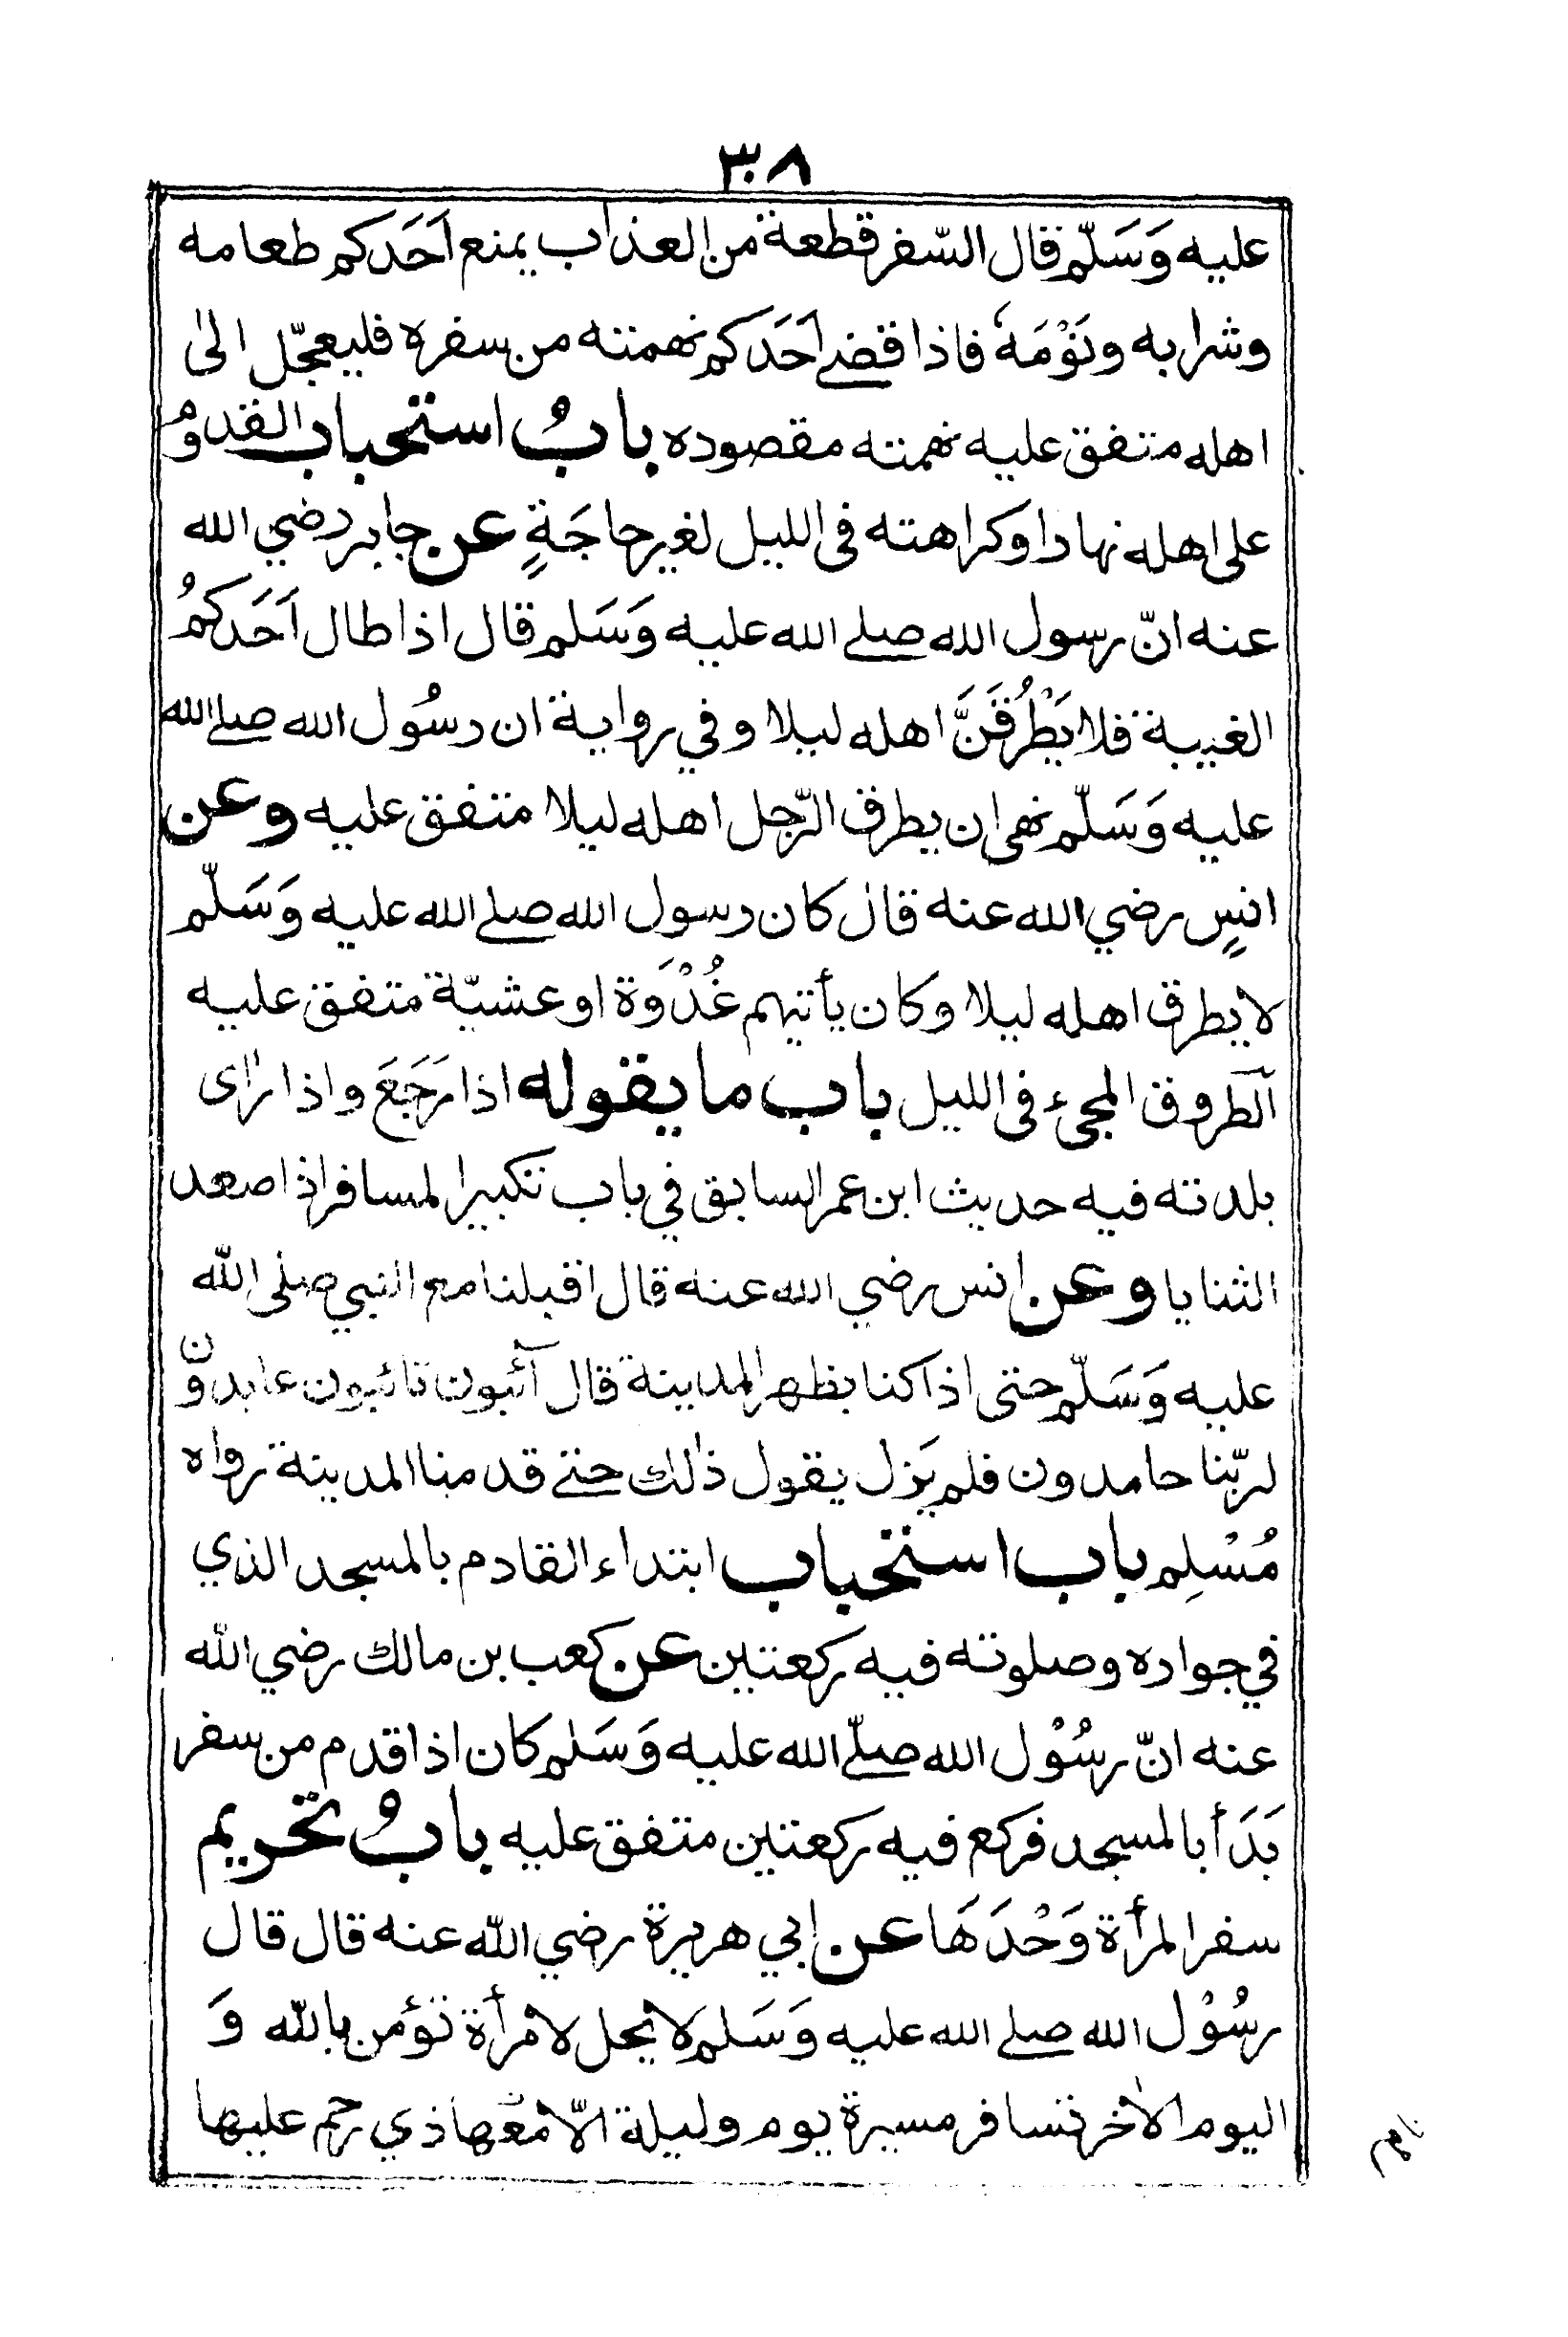 ٣٠٨
عليه وَسَلّم قال السّفر قطعة من العذاب يمنع اَحَدكم طعامه
وشرابه ونَوْمَهُ فاذا قضے اَحَدكم نهمته من سفره فليعجّل الىٰ
اهله متفق عليه نهمته مقصوده بابُ استحباب القدومُ
على اهله نهارا وكراهته فى الليل لغير حاجَةٍ عن جابر رضي الله
عنه انّ رسول الله صلے الله عليه وَسَلم قال اذا طال اَحَدكمُ
الغيبة فلا يَطْرُقَنَّ اهله ليلا وفي رواية ان رسُول الله صلے الله
عليه وَسَلّم نهى ان يطرق الرّجل اهله ليلا متفق عليه وعن
انسٍ رضي الله عنه قال كان رسول الله صلے الله عليه وَسَلّم
لا يطرق اهله ليلا وكان يأتيهم غُدْوَة او عشيّة متفق عليه
الطروق المجىء فى الليل باب ما يقوله اذا رَجَعَ واذا راى
بلدته فيه حديث ابن عمر السابق في باب تكبير المسافر اذا صعد
الثنايا وعن انس رضي الله عنه قال اقبلنا مع النبي صلى الله
عليه وَسَلّم حتى اذا كنا بظهر المدينة قال آئبون تائبون عابدون
لربّنا حامدون فلم يَزل يقول ذٰلك حتے قدمنا المدينة رواه
مُسْلِم باب استحباب ابتداء القادم بالمسجد الذي
في جواره وصلوته فيه ركعتين عن كعب بن مالك رضي الله
عنه انّ رسُوْل الله صلّے الله عليه وَسَلم كان اذا قدم من سفر
بَدَأ بالمسجد فركع فيه ركعتين متفق عليه بابُ تحريم
سفر المرأة وَحْدَهَا عن ابي هريرة رضي الله عنه قال قال
رسُوْل الله صلے الله عليه وَسَلم لا يحل لامرأة تؤمن بالله وَ
اليوم الاٰخر تسافر مسيرة يوم وليلة الاّ معها ذي رحم عليها